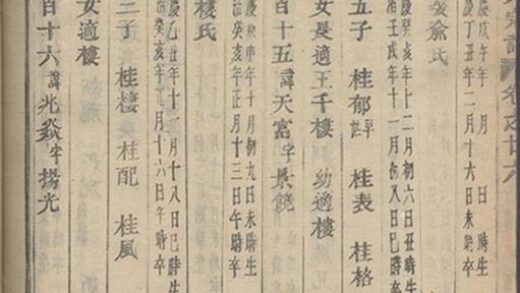 慶戊午年 月 日 時生
慶丁丑年二月十六日未時卒
俞氏
慶癸亥年十二月初六日丑時生
治壬戌年十一月初八日巳時卒
五子 桂郁早世 桂表 桂格
女長適王千樓 幼適樓
百十五諱天富字景饒
慶庚申年十月初九日未時生
治癸亥年正月十三日午時卒
樓氏
慶乙丑年十一月十八日巳時生
治癸亥年 月十六日午時卒
三子 桂棲 桂配 桂風
女適樓
百十六諱兆燚字揚光